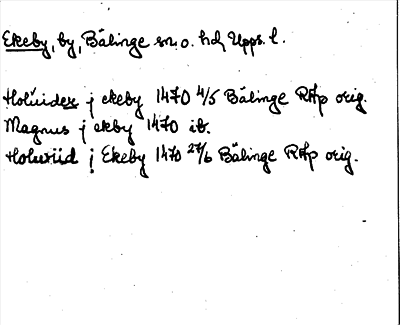 Ekeby, by, Bälinge sn o. hd, Upps. l.
Holuidex j ekeby 1470 4/5 Bälinge RAp orig.
Magnus j ekby 1470 ib.
Holwiid j Ekeby 1470 27/6 Bälinge RAp orig.